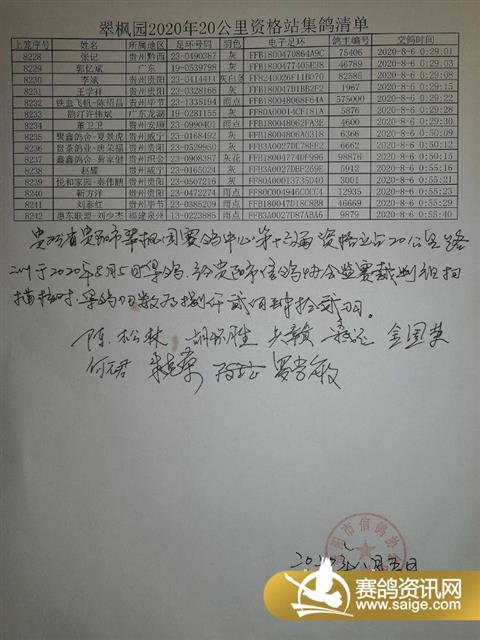 翠枫园2020年20公里资格站集鸽清单
上笼序号 姓名 所属地区 足环号码 羽色 电子足环 鸽主编号 交鸽时间
8228 张记 贵州黔西 23-0490387 灰 FFB1800470864A9C 75406 2020-8-6 0:29:01
8229 郭忆斌 广东 19-0539798 灰 FFB18004774​05E38 46789 2020-8-6 0:29:03
8230 李斌 贵州贵阳 23-0414411 灰白条 FF8240026F11B070 82585 2020-8-6 0:29:08
8231 王学祥 贵州贵阳 23-0328166 灰 FFB180047D1BB2F2 1967 2020-8-6 0:29:15
8232 铁血飞机-陈绍昌 贵州毕节 23-1335194 雨点 FFB18048068F64A 575000 2020-8-6 0:29:22
8233 韵汀许伟斌 广东龙湖 19-0281155 灰 5876 2020-8-6 0:29:28
8234 董卫卫 贵州安顺 23-0990403 雨点 9430 2020-8-6 0:29:34
8235 聚鑫鸽舍-夏景虎 贵州威宁 灰 FFB18004806A0318 6366 2020-8-6 0:50:09
8236 贵州贵阳 23-0529960 灰 6662 2020-8-6 0:50:12
8237 鑫鑫鸽舍-黄家健 贵州织金 23-0908387 灰花 FFB18004774DF996 98876 2020-8-6 0:50:15
8238 赵耀 贵州威宁 23-0165024 灰 5912 2020-8-6 0:55:15
8239 悦和家园-秦伟糖 贵州贵阳 23-0507216 灰 FF80A00013735D40 3001 2020-8-6 0:55:21
8240 靳方洋 贵州贵阳 雨点 FF80C004946C0CC4 12935 2020-8-6 0:55:23
8241 刘泰红 贵州毕节 23-0385209 雨点 FFB180047D18C8B8 46669 2020-8-6 0:55:29
8242 惠东联盟-刘少杰 福建泉州 13-0223885 雨点 FFB3A0027D87ABA6 9879 2020-8-6 0:55:40
贵州省贵阳市翠枫园赛鸽中心第十三届资格站20公里
训于2020年8月5日集鸽，经贵阳市信鸽协会监赛裁判组扫
描核对，集鸽羽数为捌仟贰佰肆拾贰羽。
陈松林 金国英
罗学敏
阳市信鸽协会
月五日
赛鸽资讯网
www.saige.com